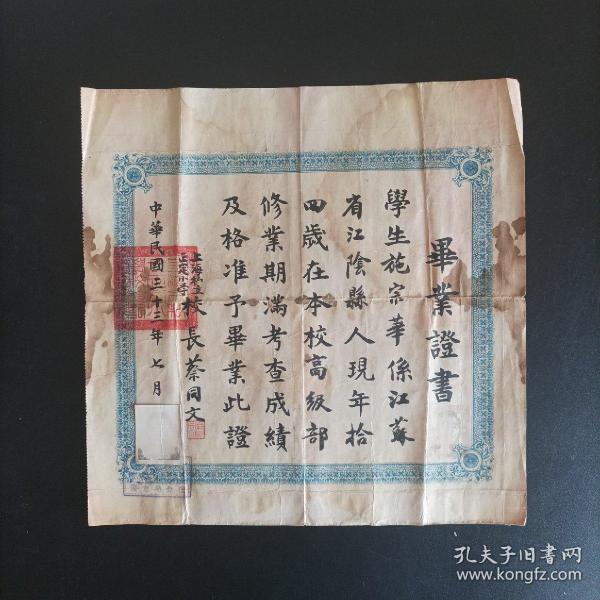 畢業證書
學生施宗華係江蘇
省江陰縣人現年拾
四歲在本校高級部
修業期滿考查成績
及格准予畢業此證
上海私立
正定小學
校長蔡同文
中華民國三十三年七月
孔夫子旧书网
www.kongfz.com